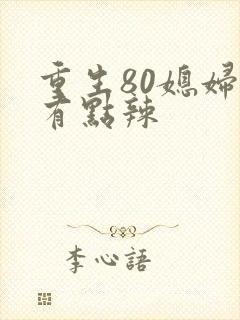 重生80媳婦
有點辣
李心語